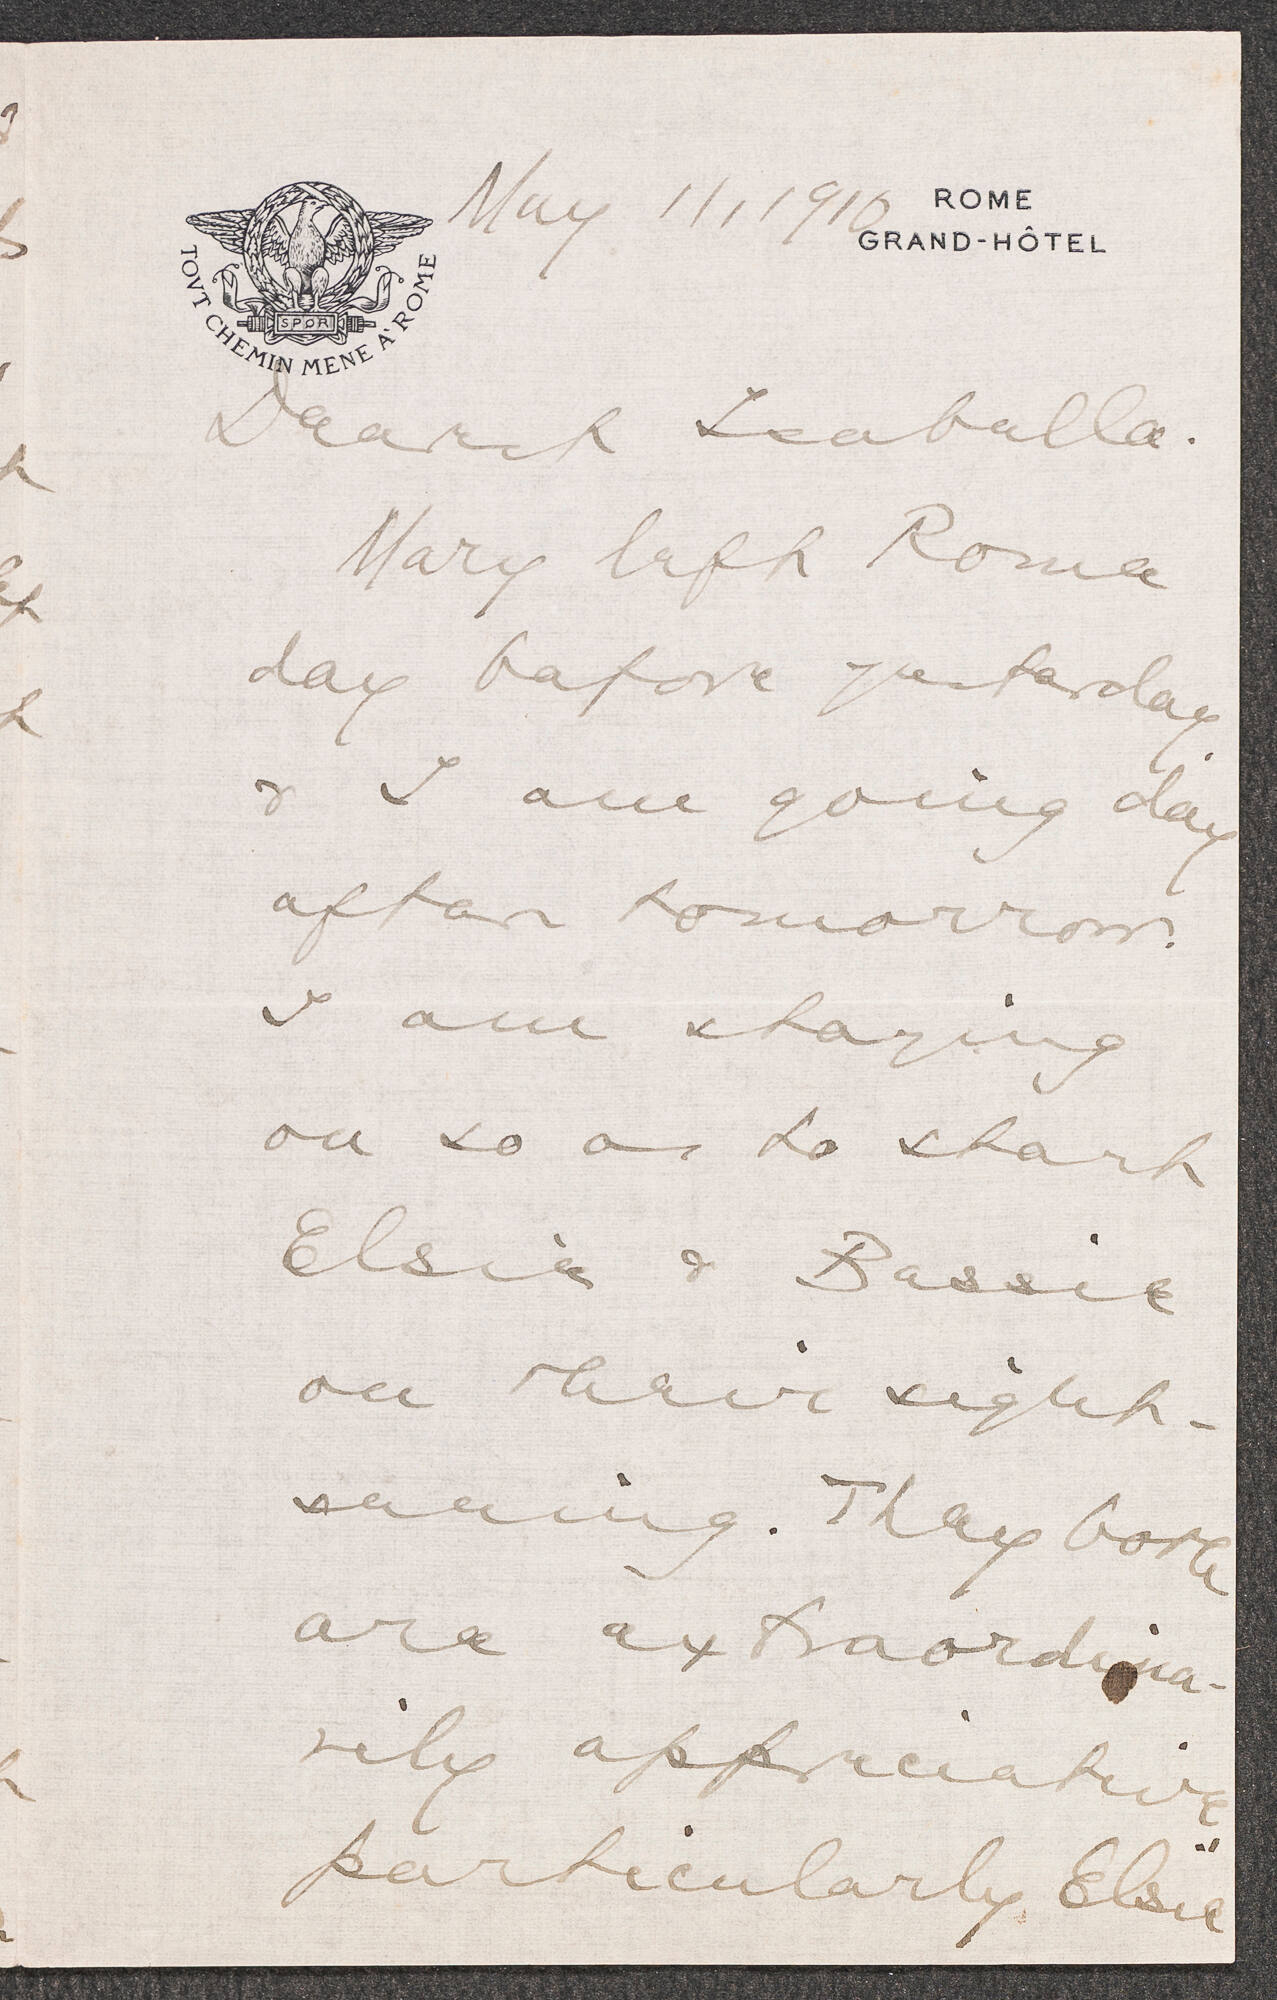 May 11, 1910
ROME
GRAND-HÔTEL
SPQR
TOVT CHEMIN MENE A' ROME
Dearest Isabella.
Mary left Rome
day before yesterday,
& I am going day
after tomorrow.
I am staying
on so as to start
Elsie & Bessie
on their sight-
seeing. They both
are extraordina-
rily appreciative
particularly Elsie